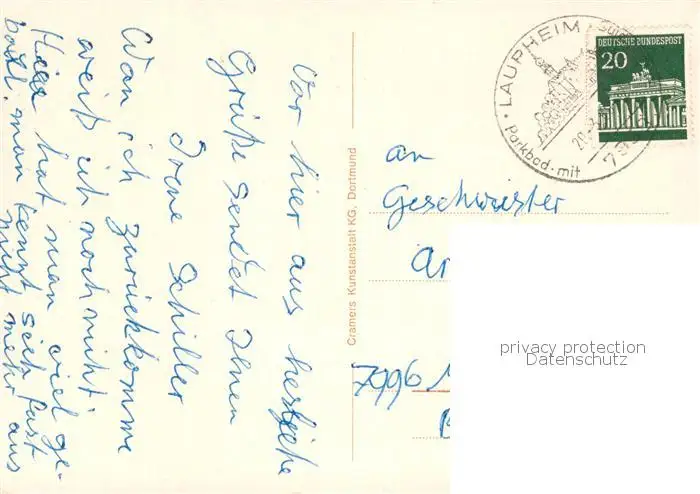 Vor hier aus herzliche
Grüße sendet Ihnen
Irene Schiller
Wan ich zurückkomme
weiß ich noch nicht
Hier hat man viel ge-
baut, man kennt sich fast
nicht mehr aus
Cramers Kunstanstalt KG, Dortmund
LAUPHEIM
Parkbad · mit
DEUTSCHE BUNDESPOST
20
an
Geschwister
7996
privacy protection
Datenschutz